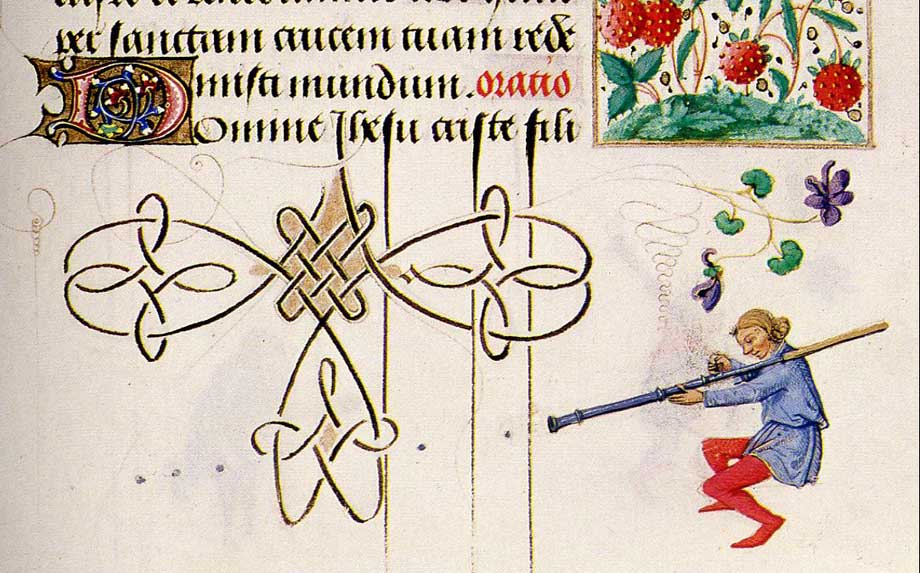 per sanctam crucem tuam rede
misti mundum. oratio
Domine Jhesu criste fili